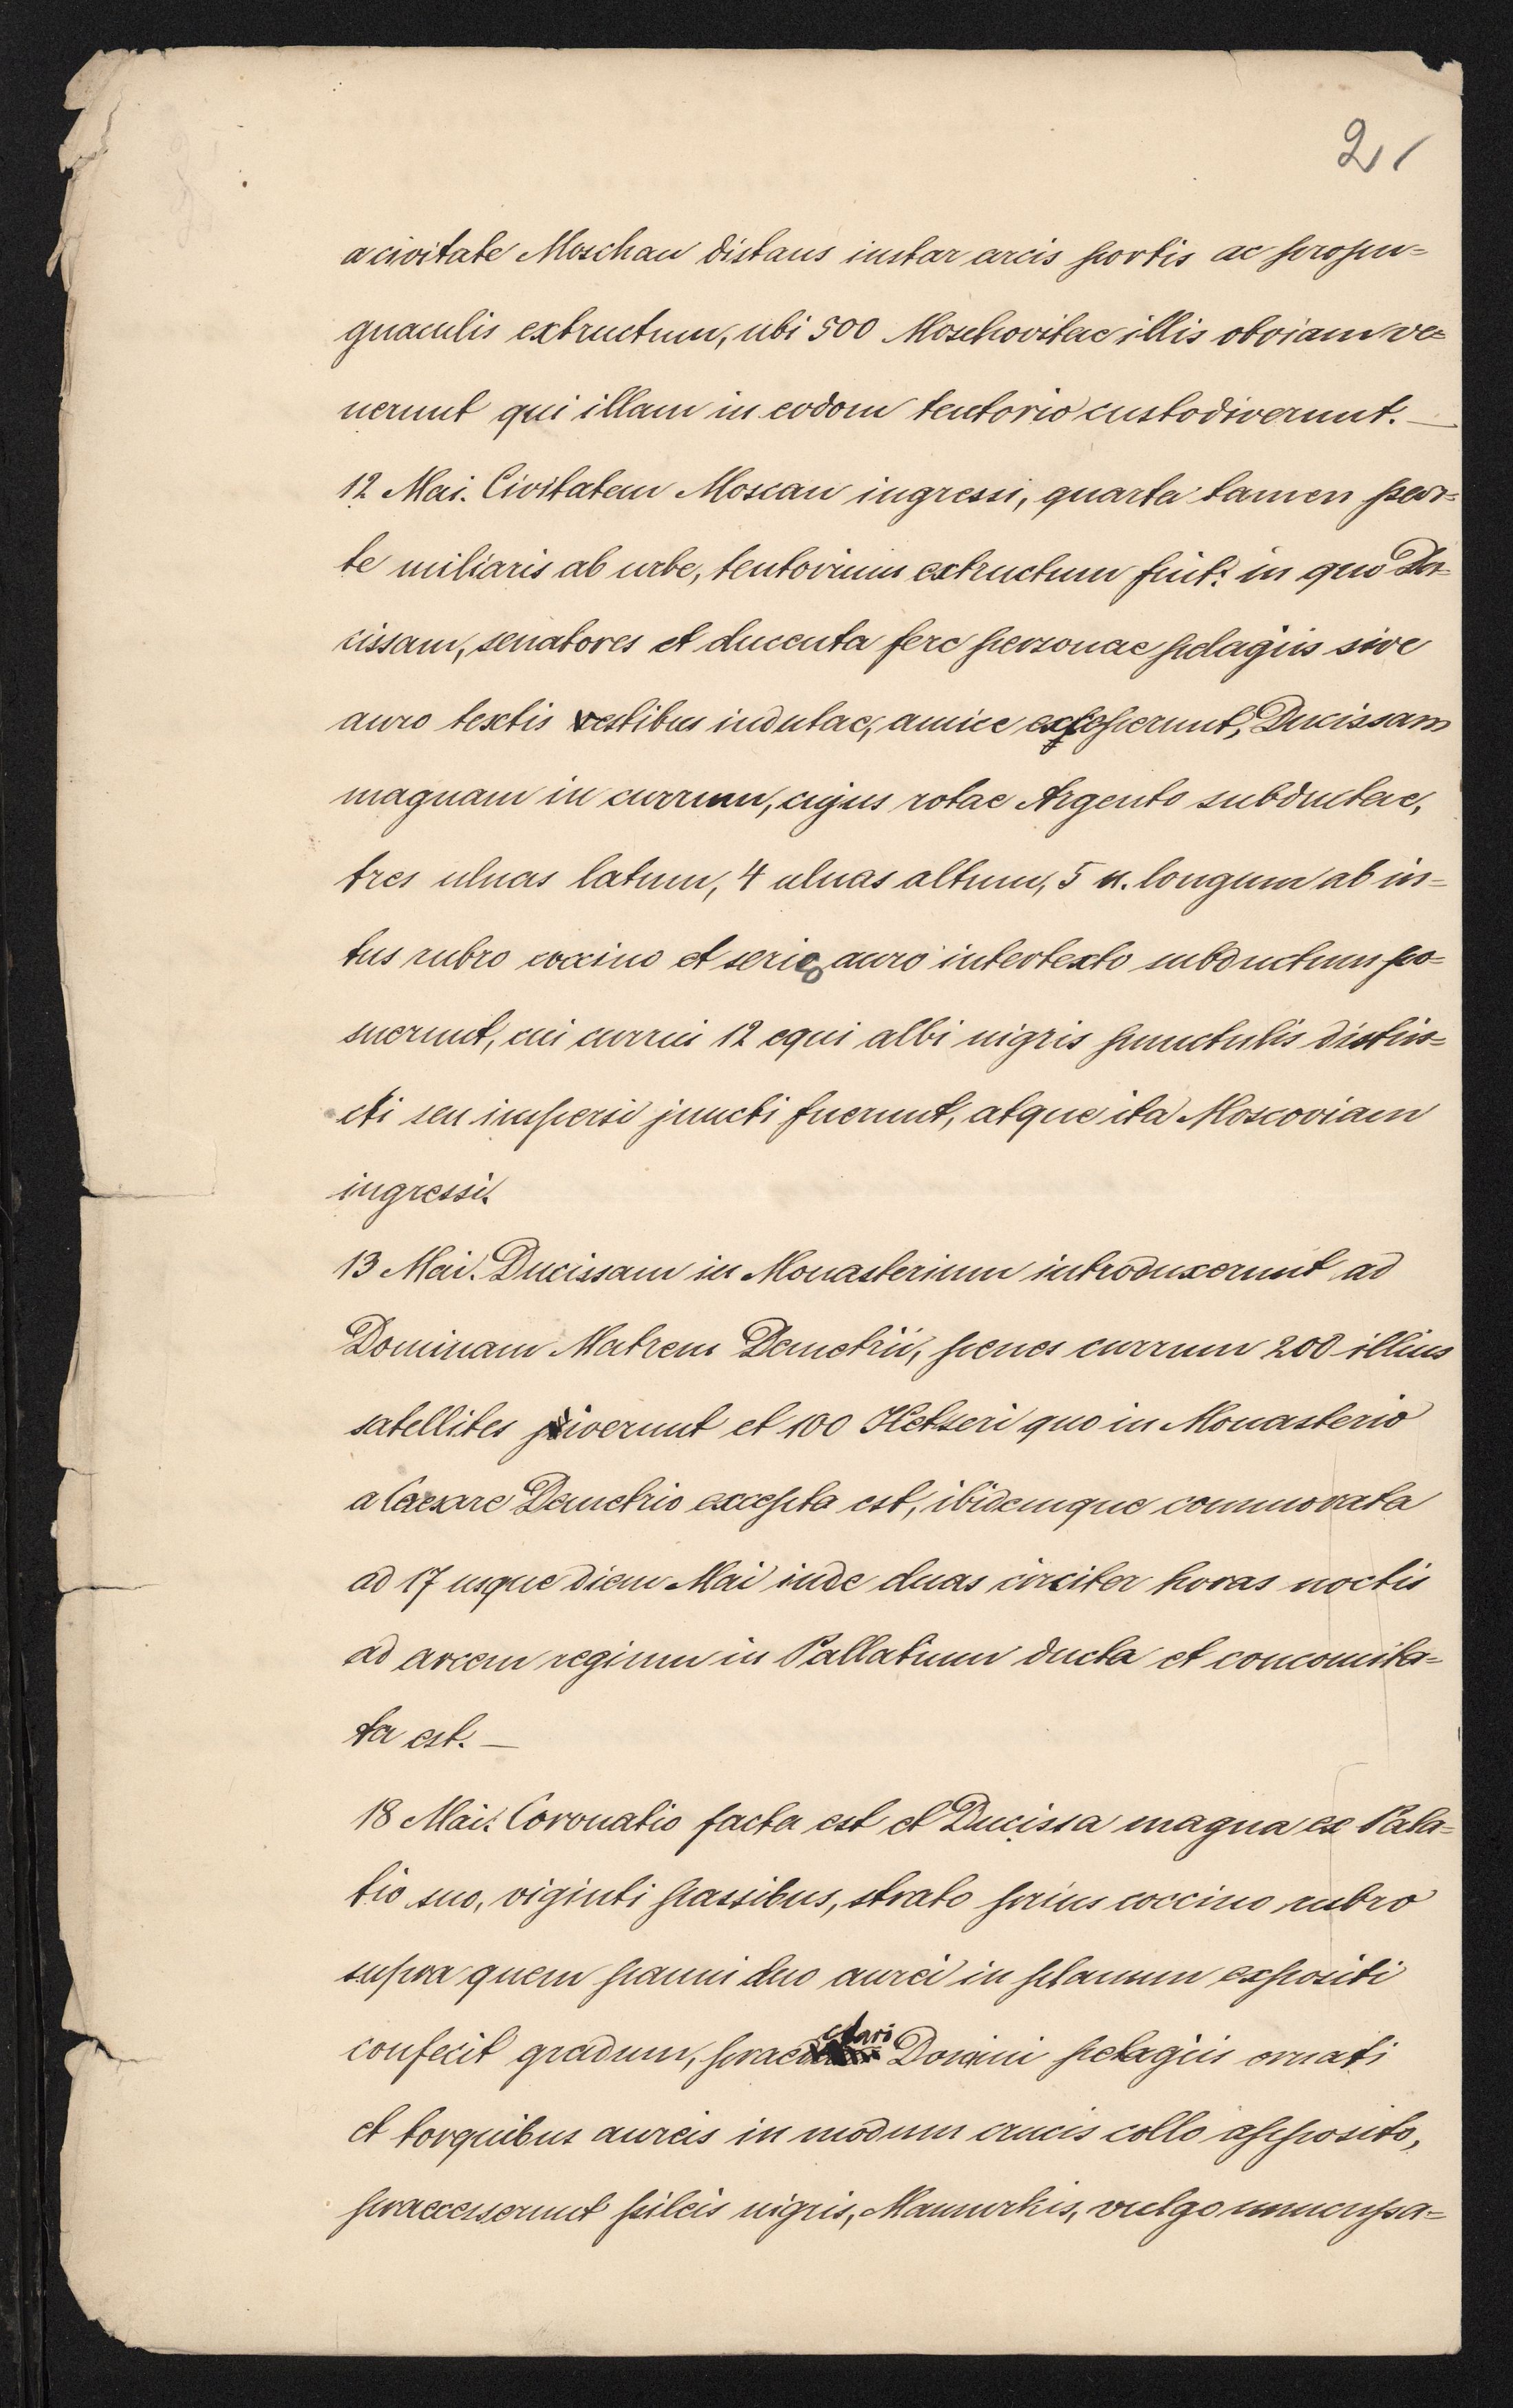 21
a civitate Moschau distans instar arcis portis ac propu=
gnaculis extructum, ubi 500 Moschovitae illis obviam ve=
nerunt qui illam in eodom tentorio custodiverunt. —
12 Mai. Civitatem Moscau ingressi, quarta tamen par=
te miliaris ab urbe, tentorium extructum fuit: in quo Du=
cissam, senatores et ducenta fere personae pelagiis sive
auro textis vestibus indutae, amice exceperunt, Ducissam
magnam in currum, cujus rotae Argento subductae,
tres ulnas latum, 4 ulnas altum, 5 u. longum ab in=
tus rubro coccino et serico auro intertexto subductum po=
suerunt, cui currui 12 equi albi nigris punctulis distin=
cti seu inspersi juncti fuerunt, atque ita Moscoviam
ingressi.
13 Mai. Ducissam in Monasterium introduxerunt ad
Dominam Matrem Demetrii, penes currum 200 illius
satellites iverunt et 100 Hetseri quo in Monasterio
a Caesare Demetrio excepta est, ibidemque commorata
ad 17 usque diem Mai inde duas circiter horas noctis
ad arcem regium in Pallatium ducta et concomita=
ta est. —
18 Mai. Coronatio facta est et Ducissa magna ex Pala=
tio suo, viginti passibus, strato prius coccino rubro
supra quem panni duo aurei in planum expositi
confecit gradum, praeclari Domini pelagiis ornati
et torquibus aureis in modum crucis collo apposito,
praecesserunt pileis nigris, Mannurkis, vulgo nuncupa=